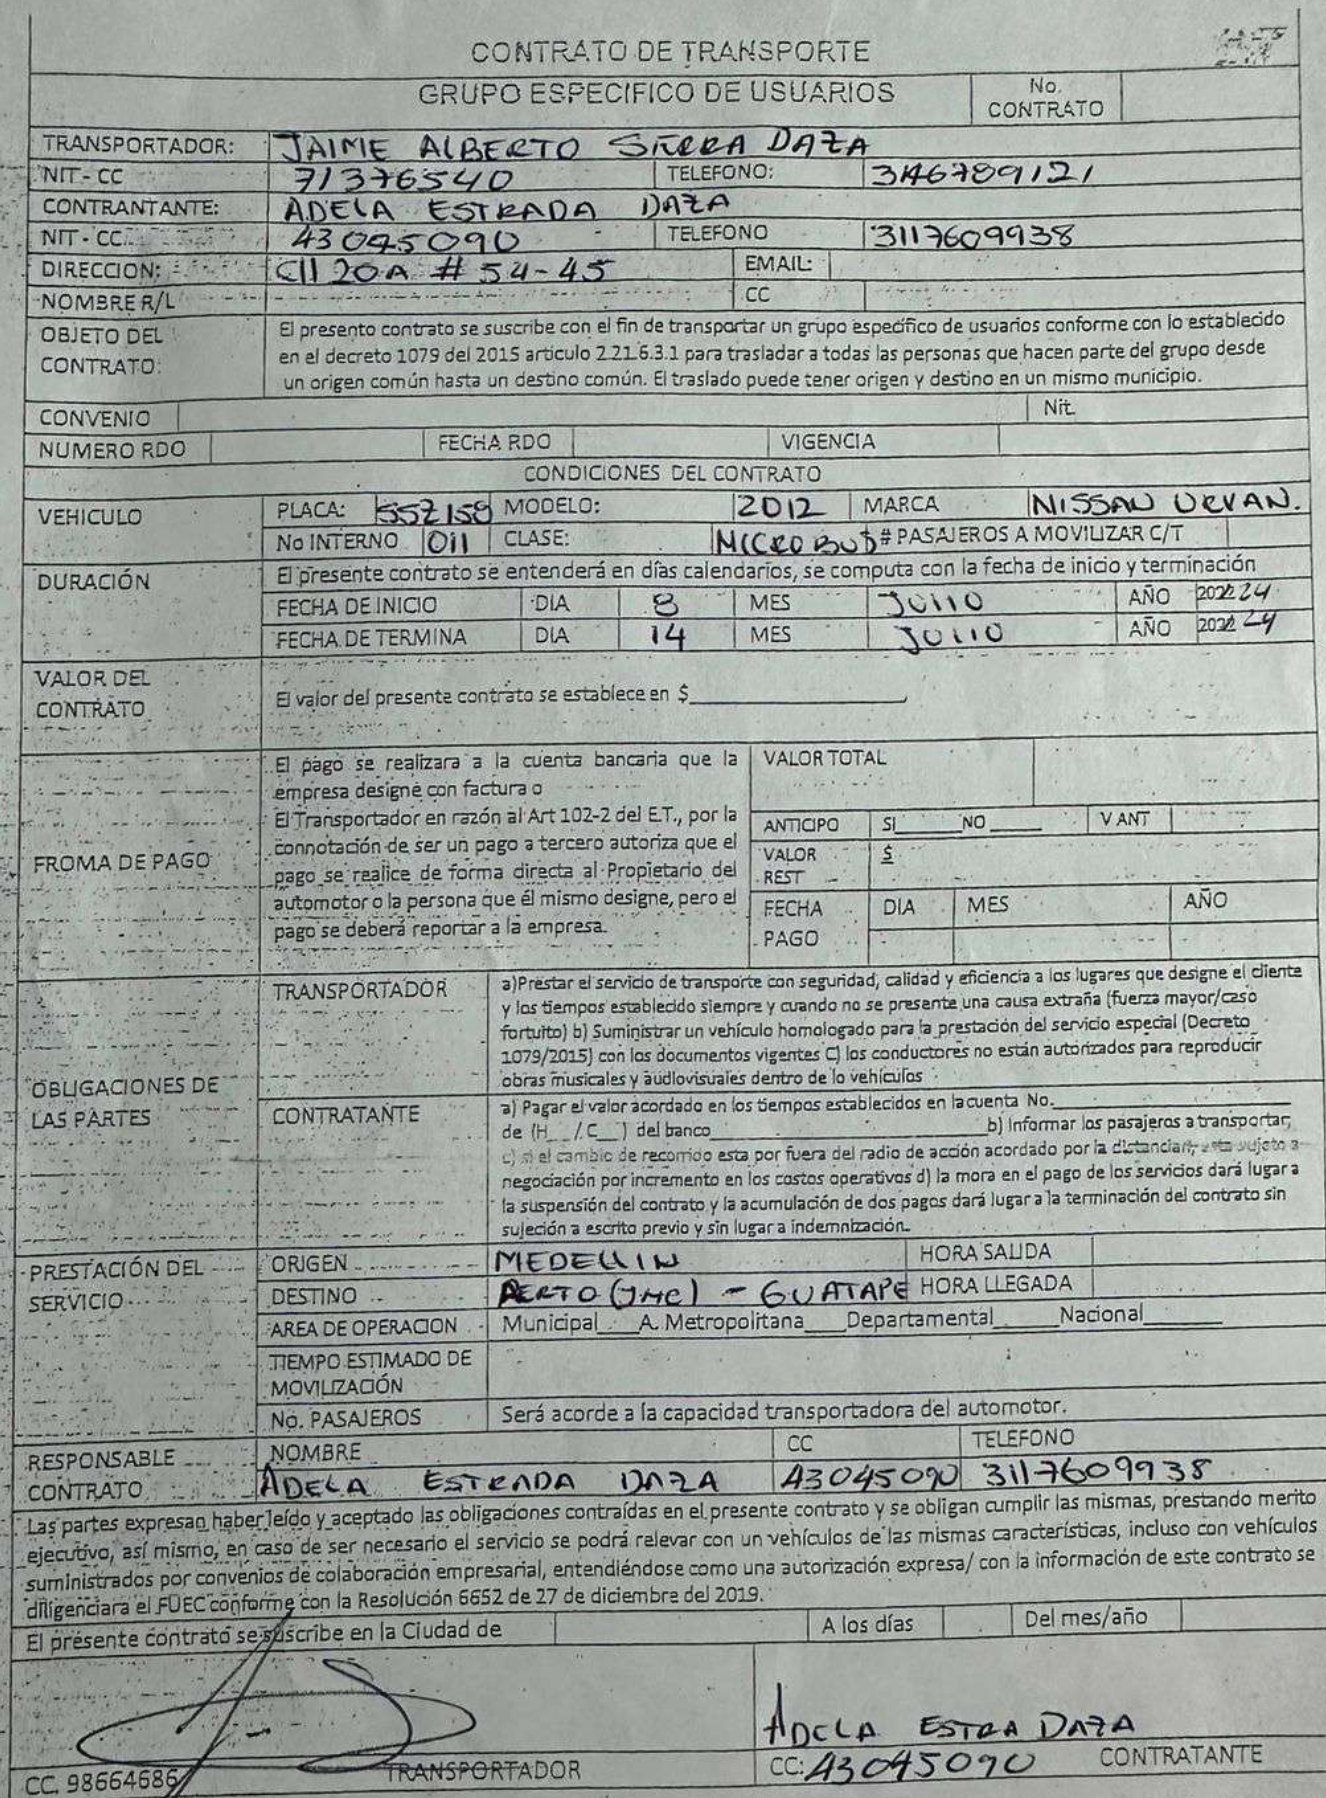 CONTRATO DE TRANSPORTE
GRUPO ESPECIFICO DE USUARIOS No. CONTRATO
TRANSPORTADOR: JAIME ALBERTO SIERRA DAZA
NIT - CC 71376540 TELEFONO: 3146789121
CONTRANTANTE: ADELA ESTRADA DAZA
NIT - CC 43045090 TELEFONO 3117609938
DIRECCION: Cll 20A # 54-45 EMAIL:
NOMBRE R/L CC
OBJETO DEL CONTRATO: El presento contrato se suscribe con el fin de transportar un grupo especifico de usuarios conforme con lo establecido
en el decreto 1079 del 2015 articulo 2.21.6.3.1 para trasladar a todas las personas que hacen parte del grupo desde
un origen común hasta un destino común. El traslado puede tener origen y destino en un mismo municipio.
CONVENIO Nit.
NUMERO RDO FECHA RDO VIGENCIA
CONDICIONES DEL CONTRATO
VEHICULO PLACA: SSZ158 MODELO: 2012 MARCA NISSAN URVAN.
No INTERNO 011 CLASE: MICROBUS # PASAJEROS A MOVILIZAR C/T
DURACIÓN El presente contrato se entenderá en días calendarios, se computa con la fecha de inicio y terminación
FECHA DE INICIO DIA 8 MES JULIO AÑO 2024
FECHA DE TERMINA DIA 14 MES JULIO AÑO 2024
VALOR DEL CONTRATO El valor del presente contrato se establece en $
FROMA DE PAGO
El pago se realizara a la cuenta bancaria que la
empresa designe con factura o
El Transportador en razón al Art 102-2 del E.T., por la
connotación de ser un pago a tercero autoriza que el
pago se realice de forma directa al Propietario del
automotor o la persona que él mismo designe, pero el
pago se deberá reportar a la empresa.
VALOR TOTAL
ANTICIPO SI____ NO____ V ANT
VALOR REST $
FECHA PAGO DIA MES AÑO
OBLIGACIONES DE LAS PARTES
TRANSPORTADOR
a)Prestar el servicio de transporte con seguridad, calidad y eficiencia a los lugares que designe el cliente
y los tiempos establecido siempre y cuando no se presente una causa extraña (fuerza mayor/caso
fortuito) b) Suministrar un vehículo homologado para la prestación del servicio especial (Decreto
1079/2015) con los documentos vigentes C) los conductores no están autorizados para reproducir
obras musicales y audiovisuales dentro de lo vehículos
CONTRATANTE
a) Pagar el valor acordado en los tiempos establecidos en la cuenta No.
de (H__/C__) del banco____ b) Informar los pasajeros a transportar,
c) si el cambio de recorrido esta por fuera del radio de acción acordado por la distancian; esta sujeto a
negociación por incremento en los costos operativos d) la mora en el pago de los servicios dará lugar a
la suspensión del contrato y la acumulación de dos pagos dará lugar a la terminación del contrato sin
sujeción a escrito previo y sin lugar a indemnización.
PRESTACIÓN DEL SERVICIO
ORIGEN MEDELLIN HORA SALIDA
DESTINO AERTO (JMC) - GUATAPE HORA LLEGADA
AREA DE OPERACION Municipal___A. Metropolitana___Departamental____Nacional____
TIEMPO ESTIMADO DE MOVILIZACIÓN
No. PASAJEROS Será acorde a la capacidad transportadora del automotor.
RESPONSABLE CONTRATO NOMBRE CC TELEFONO
ADELA ESTRADA DAZA 43045090 3117609938
Las partes expresan haber leído y aceptado las obligaciones contraídas en el presente contrato y se obligan cumplir las mismas, prestando merito
ejecutivo, así mismo, en caso de ser necesario el servicio se podrá relevar con un vehículos de las mismas características, incluso con vehículos
suministrados por convenios de colaboración empresarial, entendiéndose como una autorización expresa/ con la información de este contrato se
diligenciará el FUEC conforme con la Resolución 6652 de 27 de diciembre del 2019.
El presente contrato se suscribe en la Ciudad de A los días Del mes/año
ADELA ESTRA DAZA
CC. 98664686 TRANSPORTADOR CC: 43045090 CONTRATANTE